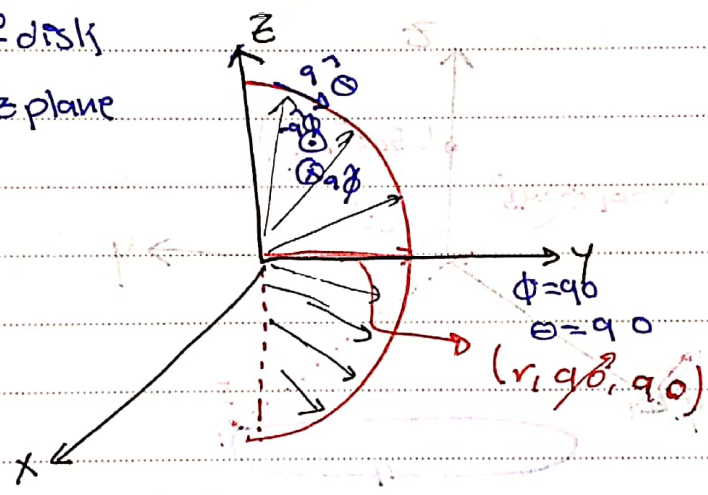 disk
Z
plane
a^ θ
-aφ
aφ
Y
φ=90
θ=90
(r, 90, 90)
X